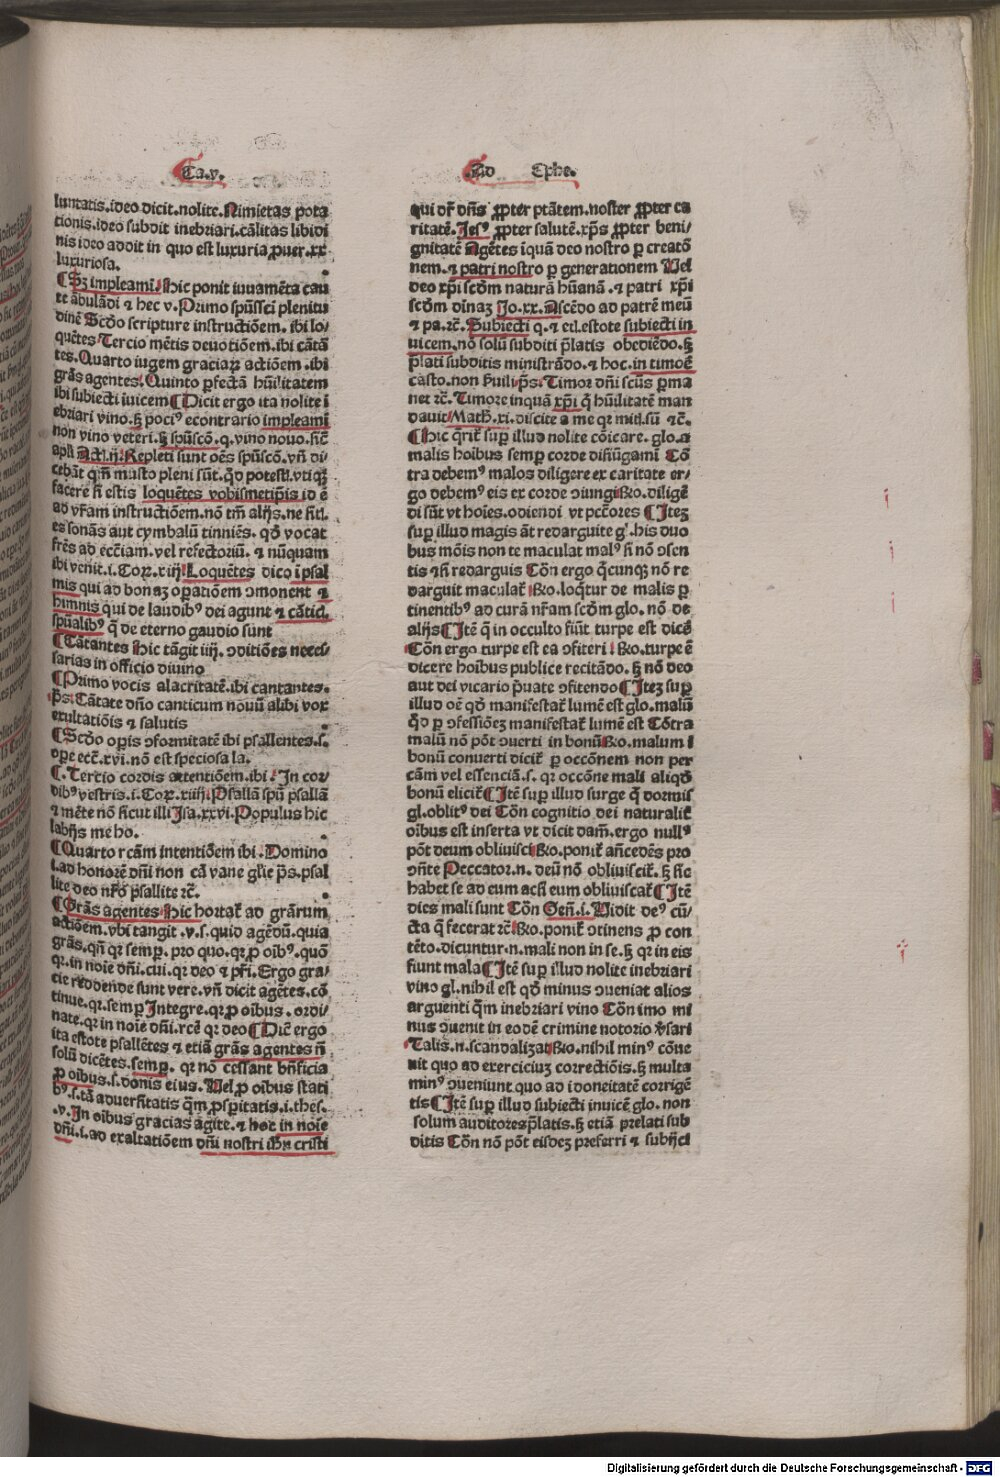 Ca.v.
luntatis.ideo dicit.nolite.Nimietas pota
tionis.ideo subdit inebriari.cālitas libidi
nis ideo addit in quo est luxuria ꝓuer.xx.
luxuriosa.
¶Sꝫ impleami.Hic ponit iuuamēta cau
te ābulādi ⁊ hec v.Primo spūssci plenitu
dinē Scdo scripture instructiōem.ibi lo
quētes Tercio mētis deuotiōem.ibi cātā
tes.Quarto iugem graciaꝝ actiōem.ibi
grās agentes.Quinto ꝑfectā hūilitatem
ibi subiecti iuicem ¶Dicit ergo ita nolite ī
ebriari vino.ꝫ poci⁹ econtrario impleamī
non vino veteri.ꝫ spūscō.q.vino nouo.sic̄
apłi Act.ij.Repleti sunt oēs spūscō.vn̄ di
cebāt qm̄ musto pleni sūt.qd potestł.vtiqꝫ
facere si estis loquētes vobismetip̄is id ē
ad vr̄am instructiōem.nō tm̄ alijs.ne sitł.
es sonās aut cymbalū tinniēs.qd vocat
fr̄es ad ecc̄iam.vel refectoriū.⁊ nūquam
ibi venit.i.Coꝝ.xiij.Loquētes dico ī psal
mis qui ad bonaꝫ oꝑatiōem ↄmonent ⁊
himnis qui de laudib⁹ dei agunt ⁊ cātic.
spūalib⁹ q̄ de eterno gaudio sunt
¶Cātantes Hic tāgit iiij.ↄditiōes neces
sarias in officio diuino
¶Primo vocis alacritatē.ibi cantantes.
p̄s.Cātate dn̄o canticum nouū alibi vox
exultatiōis ⁊ salutis
¶Scdo oꝑis ↄformitatē ibi psallentes.s.
oꝑe ecc̄.xvi.nō est speciosa la.
¶.Tercio cordis attentiōem.ibi.In cor
dib⁹ vestris.i.Coꝝ.xiiij.Psallā spū psallā
⁊ mēte nō sicut illi Isa.xxvi.Populus hic
labijs me ho.
¶Quarto rcām intentiōem ibi.Domino
i.ad honorē dn̄i non cā vane gł̄ie p̄s.psal
lite deo nr̄o psallite ⁊c̄.
¶Grās agentes Hic hortaꝉ ad grārum
actiōem.vbi tangit.v.s.quid agēdū.quia
grās.qn̄ qꝛ semꝑ.pro quo.qꝛ ꝓ oib⁹.quō
qꝛ.in noīe dn̄i.cui.qꝛ deo ⁊ pr̄i.Ergo gra
cie reddende sunt vere.vn̄ dicit agētes.cō
tinue.qꝛ.semꝑ Integre.qꝛ ꝓ oibus.ordi
nate.qꝛ in noīe dn̄i.rc̄e qꝛ deo ¶Dic̄ ergo
ita estote psallētes ⁊ etiā grās agentes n̄
solū dicētes.semꝑ.qꝛ nō cessant bn̄ficia
ꝓ oibus.s.donis eius.Vel ꝓ oibus stati
b⁹.s.tā aduersitatis qm̄ ꝓspitatis.i.thes.
.v.In oibus gracias agite.⁊ hoc in noīe
dn̄i.i.ad exaltatiōem dn̄i nostri ihū cristi
Ad Ephe.
qui dr̄ dn̄s ꝓpter ptātem.noster ꝓpter ca
ritatē.Ies⁹ ꝓpter salutē.xp̄s ꝓpter beni
gnitatē Agētes īquā deo nostro ꝑ creatō
nem.⁊ patri nostro ꝑ generationem Vel
deo xp̄i scdm naturā hūanā.⁊ patri xp̄i
scdm dīnaꝫ Jo.xx.Ascēdo ad patrē meū
⁊ pa.⁊c̄.Subiecti q.⁊ etł.estote subiecti in
uicem.nō solū subditi p̄latis obediēdo.ꝫ
p̄lati subditis ministrādo.⁊ hoc.in timoē
casto.non ẜuili.p̄s.Timoꝛ dn̄i scūs ꝑma
net ⁊c̄.Timore inquā xp̄i q̄ hūilitatē man
dauit Math.xi.discite a me qꝛ mitł.sū ⁊c̄.
¶Hic q̄riꝉ suꝑ illud nolite cōicare.glo.a
malis hoibus semꝑ corde disiūgami Cō
tra debem⁹ malos diligere ex caritate er
go debem⁹ eis ex corde ↄiungi Rō.diligē
di sūt vt hoies.odiendi vt pctores ¶Iteꝫ
suꝑ illud magis āt redarguite g°.his duo
bus mōis non te maculat mal⁹ si nō ↄsen
tis ⁊ si redarguis Cōn ergo q̄cunqꝫ nō re
darguit maculaꝉ Rō.loq̄tur de malis ꝑ
tinentib⁹ ad curā nr̄am scdm glo.nō de
alijs ¶Itē q̄ in occulto fiūt turpe est dicē
Cōn ergo turpe est ea ↄfiteri Rō.turpe ē
dicere hoībus publice recitādo.ꝫ nō deo
aut dei vicario p̄uate ↄfitendo ¶Iteꝫ suꝑ
illud oē qd manifestaꝉ lumē est glo.malū
qd ꝑ ↄfessiōeꝫ manifestaꝉ lumē est Cōtra
malū nō pōt ↄuerti in bonū Rō.malum ī
bonū conuerti diciꝉ ꝑ occōnem non per
cām vel essenciā.s.qꝛ occōne mali aliqd
bonū eliciꝉ ¶Itē suꝑ illud surge q̄ dormis
gl.oblit⁹ dei Cōn cognitio dei naturaliꝉ
oībus est inserta vt dicit dam̄.ergo null⁹
pōt deum obliuisci Rō.poniꝉ an̄cedēs pro
ↄn̄te Peccator.n.deū nō obliuisciꝉ.ꝫ sic
habet se ad eum acsi eum obliuiscaꝉ ¶Itē
dies mali sunt Cōn Gen̄.i.Vidit de⁹ cū
cta q̄ fecerat ⁊c̄ Rō.poniꝉ ↄtinens ꝓ con
tēto.dicuntur.n.mali non in se.ꝫ qꝛ in eis
fiunt mala ¶Itē suꝑ illud nolite inebriari
vino gl.nihil est qd minus ↄueniat alios
arguenti qm̄ inebriari vino Cōn imo mi
nus ↄuenit in eodē crimine notorio v̄sari
Talis.n.scandalizat Rō.nihil min⁹ cōue
nit quo ad exerciciuꝫ correctiōis.ꝫ multa
min⁹ ↄueniunt quo ad idoneitatē corrigē
tis ¶Itē suꝑ illud subiecti inuicē glo.non
solum auditores p̄latis.ꝫ etiā prelati sub
ditis Cōn nō pōt eisdeꝫ preferri ⁊ subijci
Digitalisierung gefördert durch die Deutsche Forschungsgemeinschaft - DFG